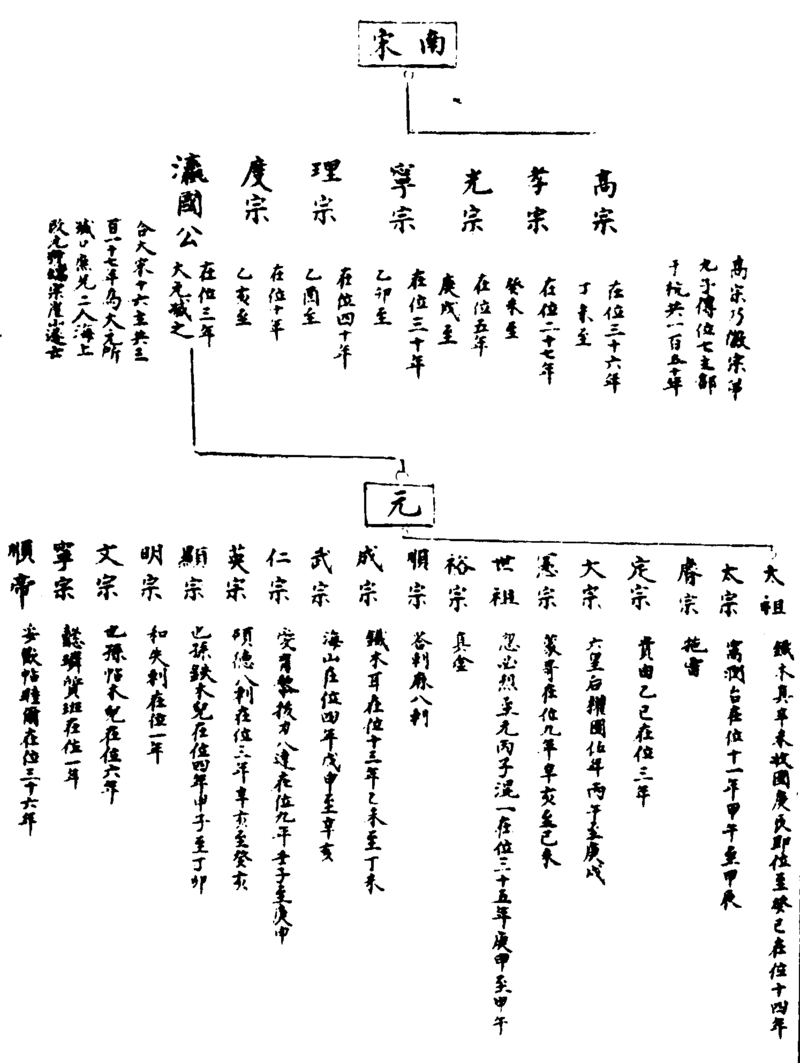 南宋
高宗乃徽宗第
九子傳位七主都
于杭共一百五十年
高宗
在位三十六年
丁未至
孝宗
在位二十七年
癸未至
光宗
在位五年
庚戌至
寧宗
在位三十年
乙卯至
理宗
在位四十年
乙酉至
度宗
在位十年
乙亥至
瀛國公
在位三年
大元滅之
合大宋十六主共三
百一十七年為大元所
滅 廣兄二人海上
改元 崖山遂亡
元
太祖
鐵木真辛未收國庚辰即位至癸巳在位十四年
太宗
窩濶台在位十一年甲午至甲辰
睿宗
拖雷
定宗
貴由乙巳在位三年
大宗
六皇后 國 年丙午至庚戌
憲宗
蒙哥在位九年辛亥至己未
世祖
忽必烈至元丙子混一在位三十五年庚申至甲午
裕宗
真金
順宗
答剌麻八剌
成宗
鐵木耳在位十三年乙未至丁未
武宗
海山在位四年戊申至辛亥
仁宗
愛育黎拔力八達在位九年壬子至庚申
英宗
碩德八剌在位三年辛亥至癸亥
顯宗
也孫鉄木兒在位四年甲子至丁卯
明宗
和失剌在位一年
文宗
也孫帖木兒在位六年
寧宗
懿璘質班在位一年
順帝
妥歡帖睦爾在位三十六年